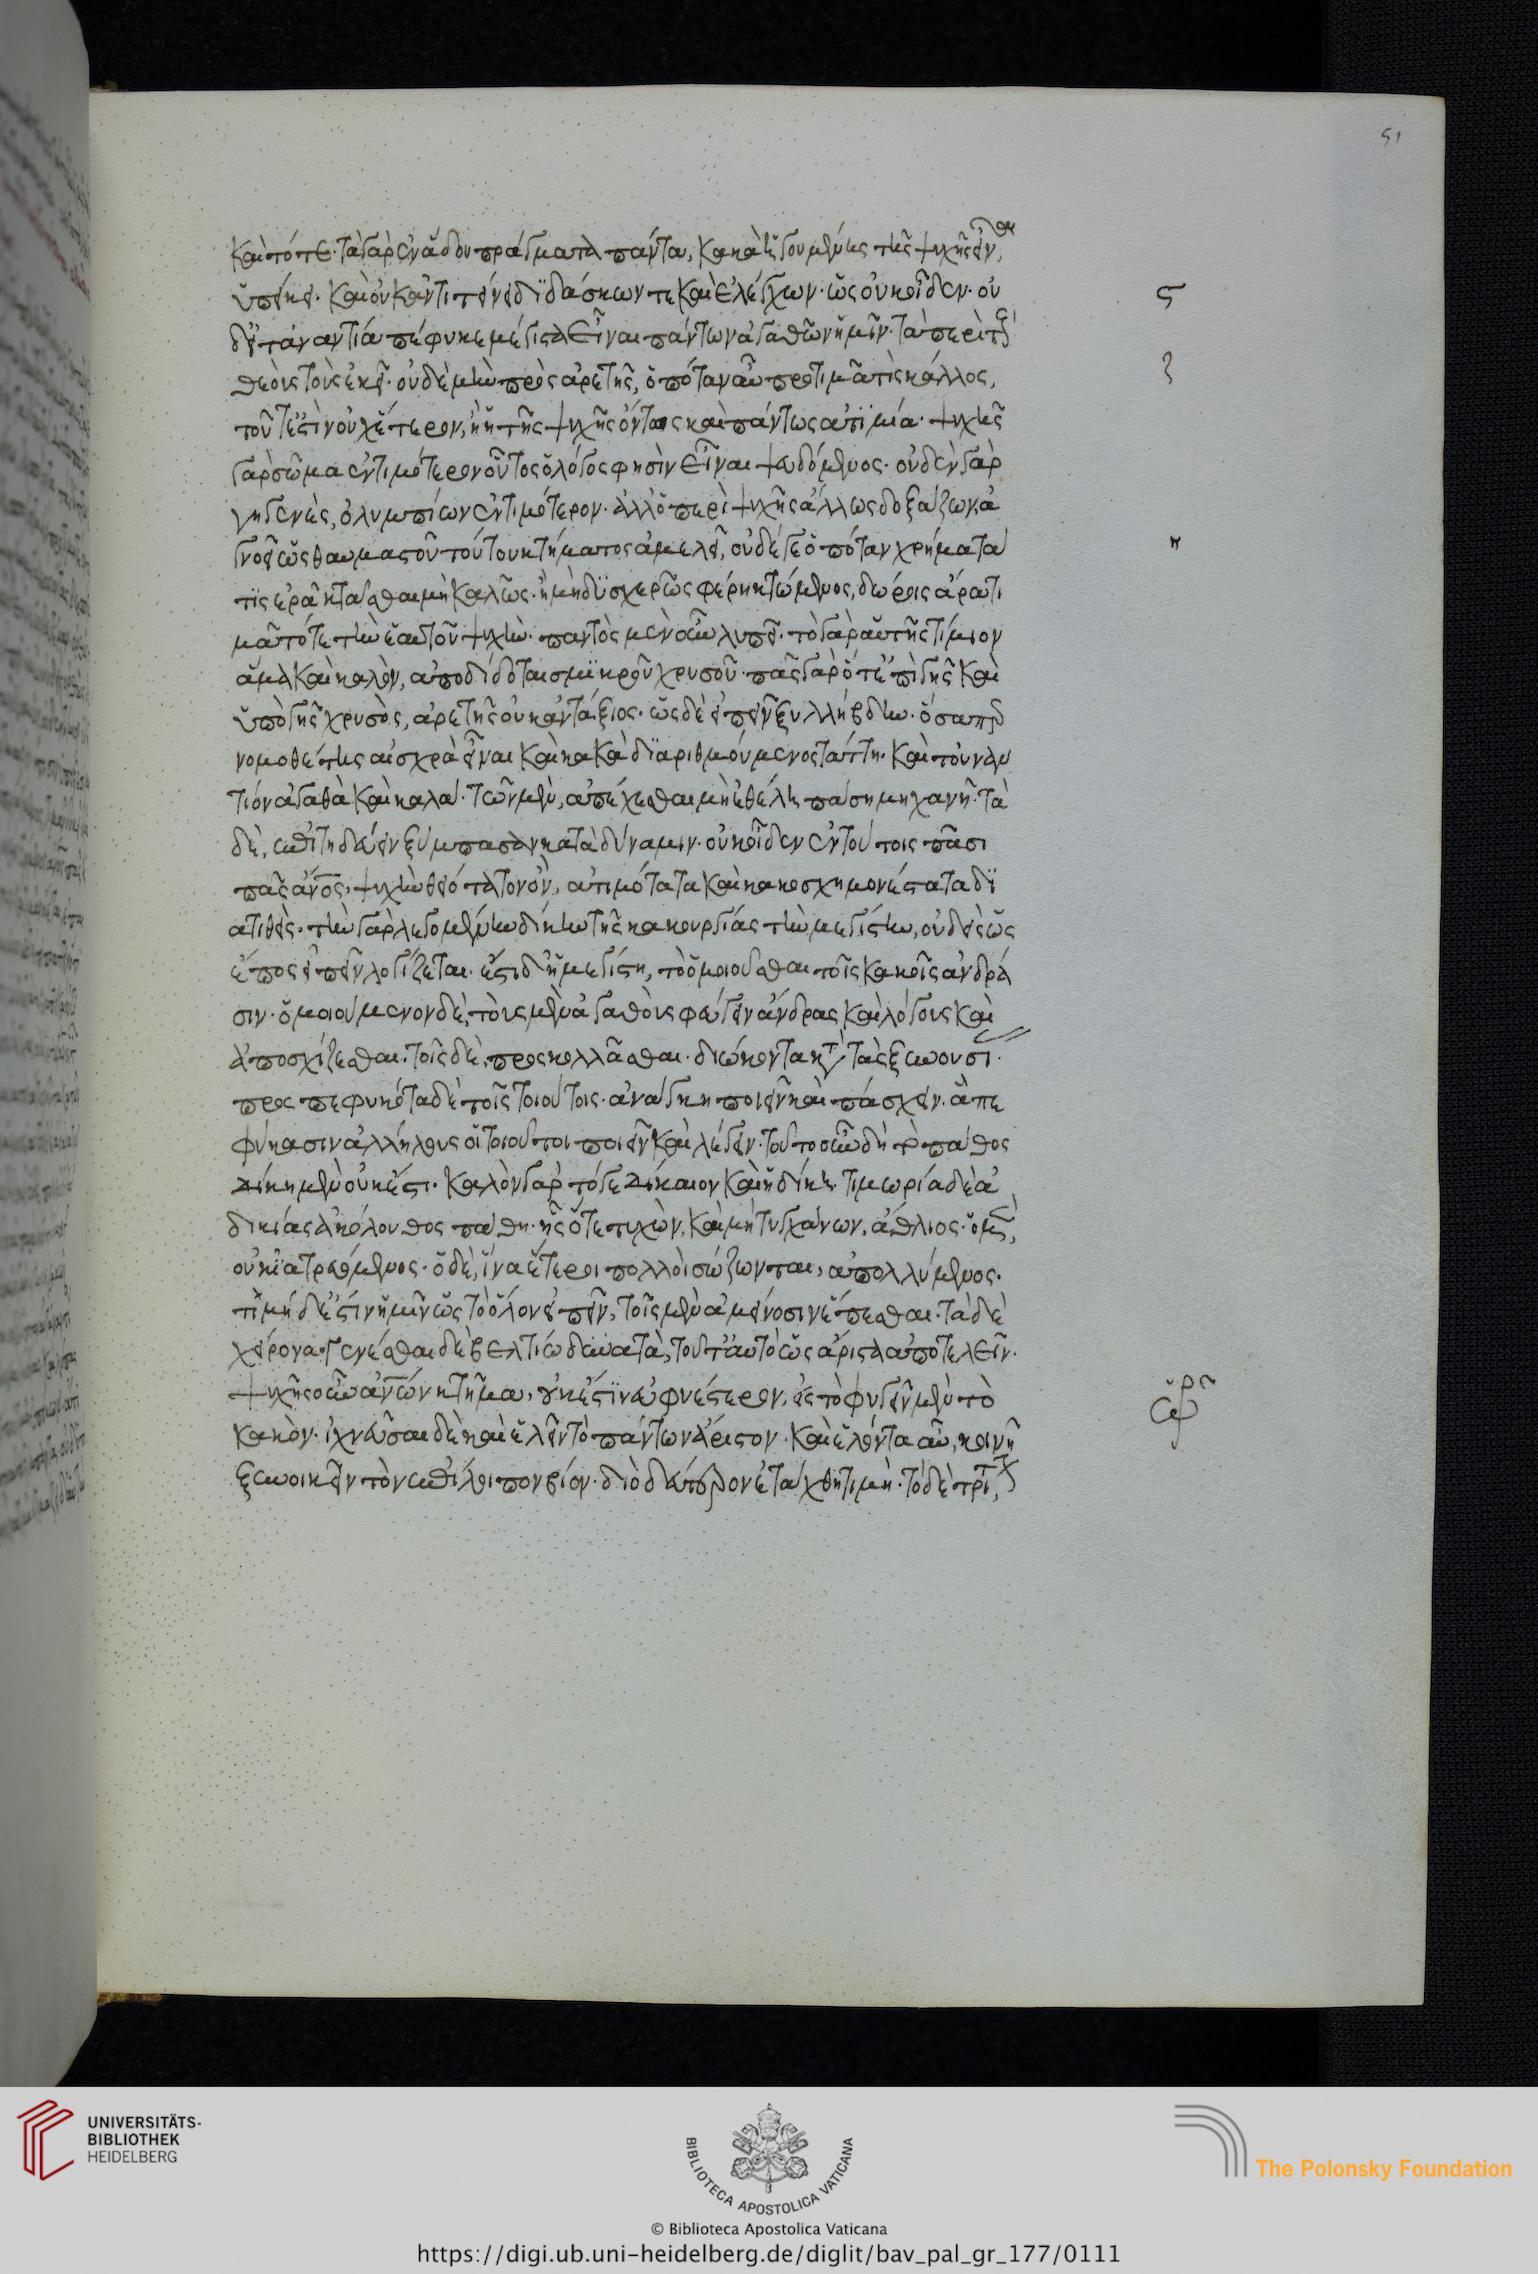 51
καὶ τότε· τὰ γὰρ ἐν ἅδου πράγματα πάντα, κακὰ ἡγουμένης τῆς ψυχῆς εἶναι,
ὑπείκει· καὶ οὐκ ἀντιτείνει διδάσκων τε καὶ ἐλέγχων· ὡς οὐκ οἶδεν· οὐ
δ' εἰ τἀναντία πέφυκε μέγιστα εἶναι πάντων ἀγαθῶν ἡμῖν· τὰ περὶ τοὺς
θεοὺς τοὺς ἐκεῖ· οὐδὲ μὴν πρὸς ἀρετῆς, ὁπόταν αὖ προτιμᾶ τὶς κάλλος,
τοῦτ' ἐστὶν οὐχ ἕτερον, ἢ ἡ τῆς ψυχῆς ὄντως καὶ πάντως ἀτιμία· ψυχῆς
γὰρ σῶμα ἐντιμότερον οὗτος ὁ λόγος φησὶν εἶναι ψευδόμενος· οὐδὲν γὰρ
γηγενὲς, ὀλυμπίων ἐντιμότερον· ἀλλ' ὁ περὶ ψυχῆς ἄλλως δοξάζων, ἀ
γνοεῖ ὡς θαυμαστοῦ τούτου κτήματος ἀμελεῖ, οὐδέ γε ὁπόταν χρήματά
τις ἐρᾶ κτᾶσθαι μὴ καλῶς· ἢ μὴ δυσχερῶς φέρη κτώμενος, δώροις ἄρα τι
μᾶ τότε τὴν ἑαυτοῦ ψυχήν· παντὸς μὲν οὖν λείπει· τὸ γὰρ αὐτῆς τίμιον
ἅμα καὶ καλὸν, ἀποδίδοται σμικροῦ χρυσοῦ· πᾶς γὰρ ὅ τ' ἐπὶ γῆς καὶ
ὑπὸ γῆς χρυσὸς, ἀρετῆς οὐκ ἀντάξιος· ὡς δὲ εἰπεῖν ξυλλήβδην· ὃς ἅπερ
νομοθέτης αἰσχρὰ εἶναι καὶ κακὰ διαριθμούμενος τάττη· καὶ τοὐναν
τίον ἀγαθὰ καὶ καλά· τῶν μὲν, ἀπέχεσθαι μὴ ἐθέλη πάση μηχανῆ· τὰ
δὲ, ἐπιτηδεύειν ξύμπασαν κατὰ δύναμιν· οὐκ οἶδεν ἐν τούτοις πᾶσι
πᾶς ἄνος, ψυχὴν θειότατον ὂν, ἀτιμότατα καὶ κακοσχημονέστατα δι
ατιθείς· τὴν γὰρ λεγομένην δίκην τῆς κακουργίας τὴν μεγίστην, οὐδεὶς ὡς
ἔπος εἰπεῖν λογίζεται· ἔστι δ' ἡ μεγίστη, τὸ ὁμοιοῦσθαι τοῖς κακοῖς ἀνδρά
σιν· ὁμοιούμενον δὲ, τοὺς μὲν ἀγαθοὺς φεύγειν ἄνδρας καὶ λόγους καὶ
ἀποσχίζεσθαι· τοῖς δὲ, προσκολλᾶσθαι· διώκοντα κατὰ τὰς ξυνουσί·
προσπεφυκότα δὲ τοῖς τοιούτοις· ἀνάγκη ποιεῖν καὶ πάσχειν· ἃ πε
φύκασιν ἀλλήλους οἱ τοιοῦτοι ποιεῖν καὶ λέγειν· τοῦτο οὖν δὴ τὸ πάθος
δίκη μὲν οὐκ ἔστι· καλὸν γὰρ τό γε δίκαιον καὶ ἡ δίκη· τιμωρία δὲ ἀ
δικίας ἀκόλουθος πάθη· ἧς ὅ τε τυχὼν, καὶ μὴ τυγχάνων, ἄθλιος· ὁ μὲν,
οὐκ ἰατρευόμενος· ὁ δὲ, ἵνα ἕτεροι πολλοὶ σώζωνται, ἀπολλύμενος·
τιμὴ δ' ἐστὶν ἡμῖν ὡς τὸ ὅλον εἰπεῖν, τοῖς μὲν ἀμείνοσιν ἕπεσθαι· τὰ δὲ
χείρονα· γενέσθαι δὲ βελτίω δυνατὰ, τοῦτ' αὐτὸ ὡς ἄριστα ἀποτελεῖν·
ψυχῆς οὖν ἀνων κτῆμα, οὐκ ἔστιν εὐφυέστερον, ἐς τὸ φυγεῖν μὲν τὸ
κακὸν· ἰχνεῦσαι δὲ καὶ ἑλεῖν τὸ πάντων ἄριστον· καὶ ἑλόντα αὖ, κοινῆ
ξυνοικεῖν τὸν ἐπίλοιπον βίον· διὸ δεύτερον ἐτάχθη τιμῆ· τὸ δὲ τρίτον,
UNIVERSITÄTS-
BIBLIOTHEK
HEIDELBERG
BIBLIOTECA APOSTOLICA VATICANA
The Polonsky Foundation
© Biblioteca Apostolica Vaticana
https://digi.ub.uni-heidelberg.de/diglit/bav_pal_gr_177/0111